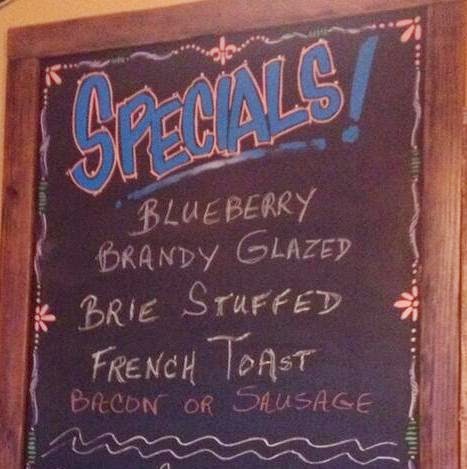 SPECIALS!
BLUEBERRY
BRANDY GLAZED
BRIE STUFFED
FRENCH TOAST
BACON OR SAUSAGE